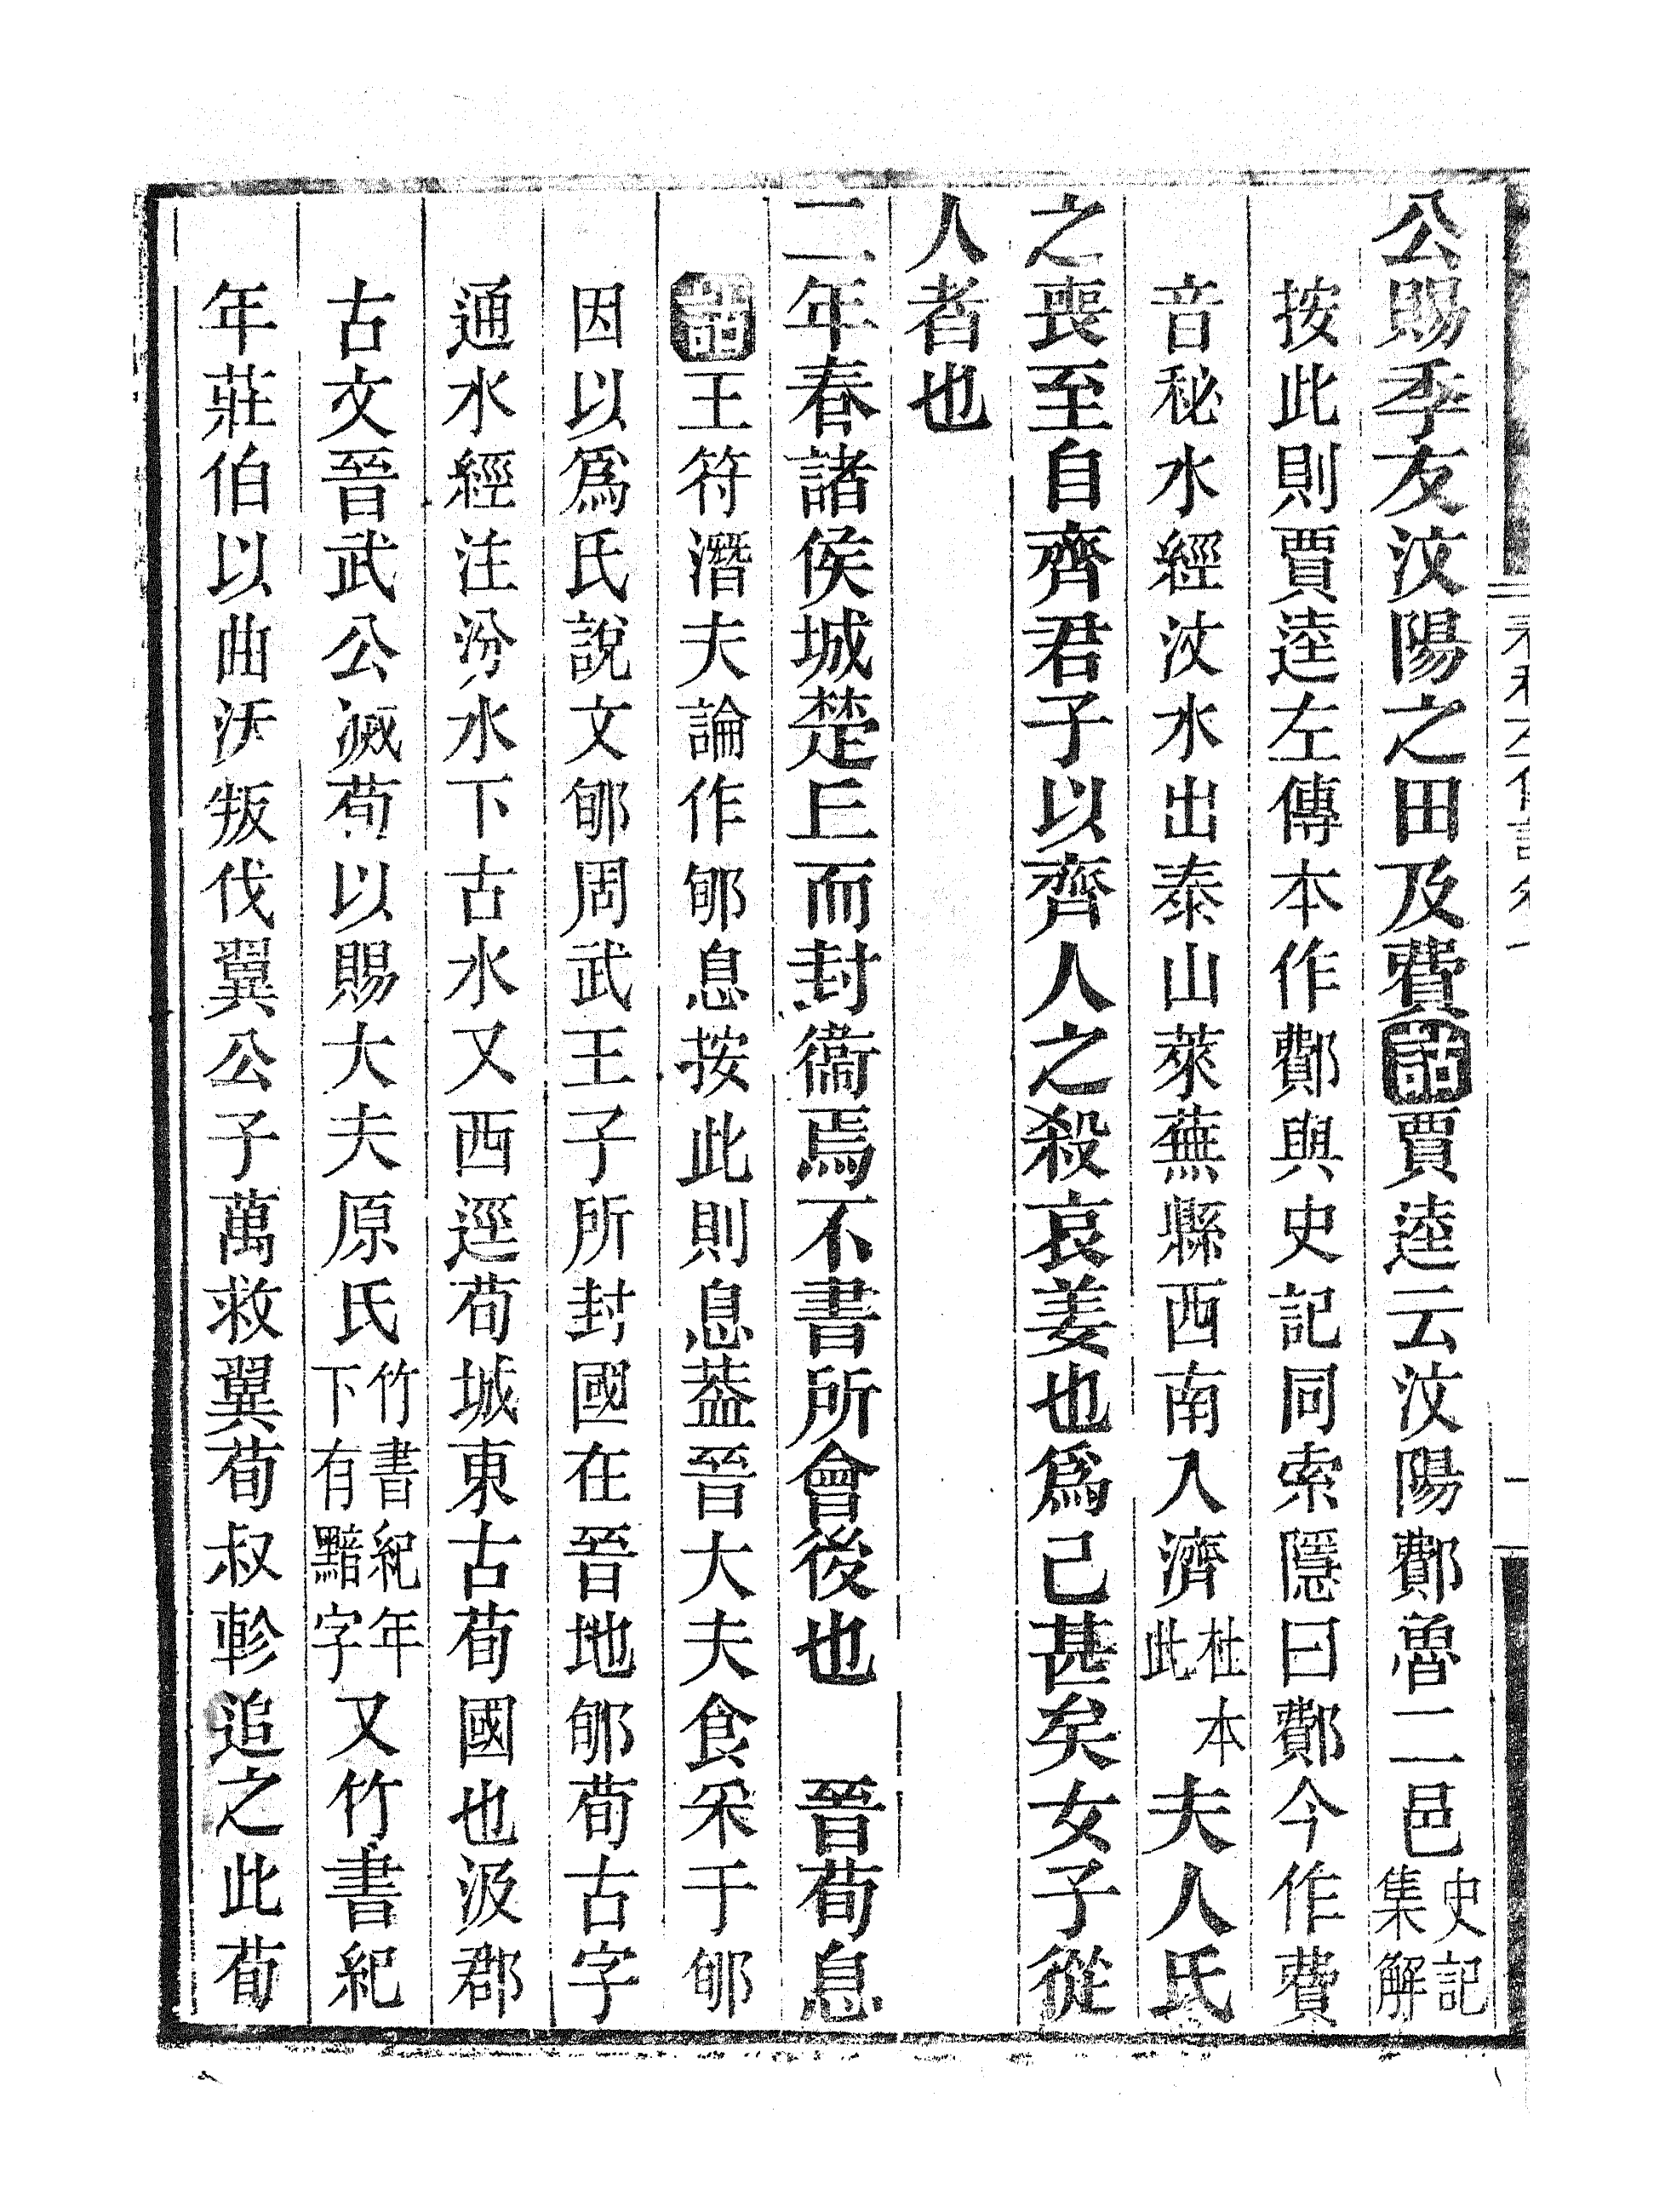 公賜季友汶陽之田及費詁賈逵云汶陽鄪魯二邑史記集解
按此則賈逵左傳本作鄪與史記同索隱曰鄪今作費
音秘水經汶水出泰山萊蕪縣西南入濟杜本此夫人氏
之喪至自齊君子以齊人之殺哀姜也爲已甚矣女子從
人者也
二年春諸侯城楚丘而封衞焉不書所會後也　晉荀息
詁王符潛夫論作郇息按此則息葢晉大夫食采于郇
因以爲氏說文郇周武王子所封國在晉地郇荀古字
通水經注汾水下古水又西逕荀城東古荀國也汲郡
古文晉武公滅荀以賜大夫原氏竹書紀年下有黯字又竹書紀
年莊伯以曲沃叛伐翼公子萬救翼荀叔軫追之此荀